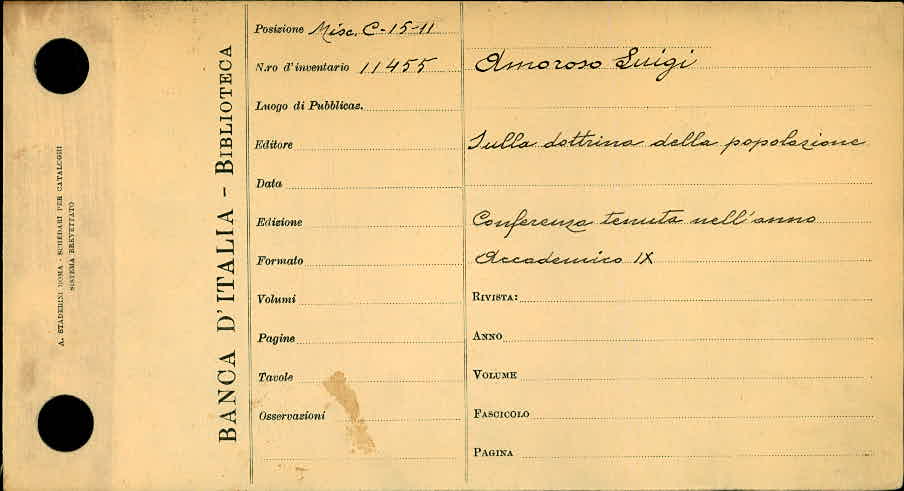 A. STADERINI ROMA - SCHEDARI PER CATALOGHI
SISTEMA BREVETTATO
BANCA D'ITALIA - BIBLIOTECA
Posizione Misc. C-15-11
N.ro d'inventario 11455
Luogo di Pubblicaz.
Editore
Data
Edizione
Formato
Volumi
Pagine
Tavole
Osservazioni
Amoroso Luigi
Sulla dottrina della popolazione
Conferenza tenuta nell'anno
Accademico IX
RIVISTA:
ANNO
VOLUME
FASCICOLO
PAGINA